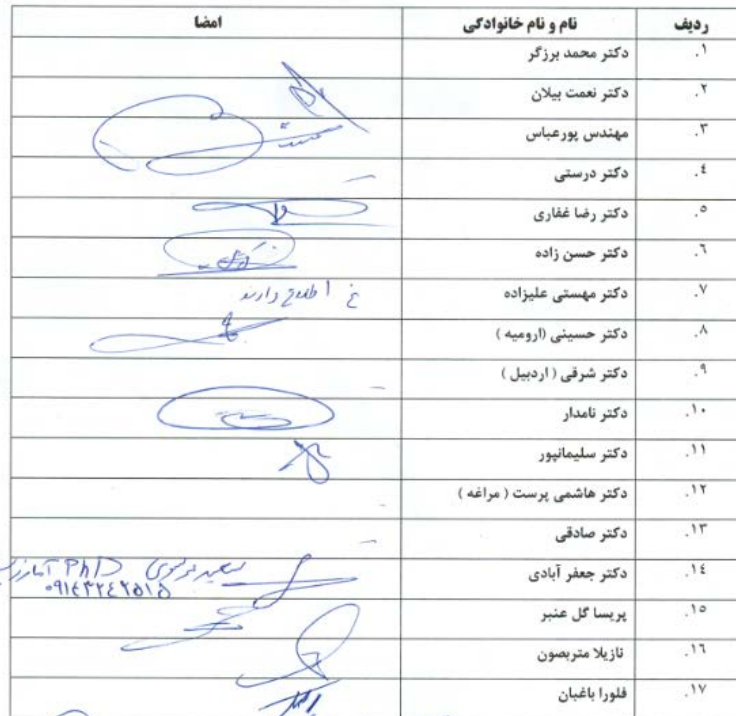 ردیف نام و نام خانوادگی امضا
۱. دکتر محمد برزگر
۲. دکتر نعمت بیلان
۳. مهندس پورعباس
۴. دکتر درستی
۵. دکتر رضا غفاری
۶. دکتر حسن زاده
۷. دکتر مهستی علیزاده غ اطلاع دارند
۸. دکتر حسینی (ارومیه )
۹. دکتر شرقی ( اردبیل )
۱۰. دکتر نامدار
۱۱. دکتر سلیمانپور
۱۲. دکتر هاشمی پرست ( مراغه )
۱۳. دکتر صادقی
۱۴. دکتر جعفر آبادی سعید موسوی PhD
۰۹۱۴۳۲۴۲۵۱۵
۱۵. پریسا گل عنبر
۱۶. نازیلا متربصون
۱۷. فلورا باغبان